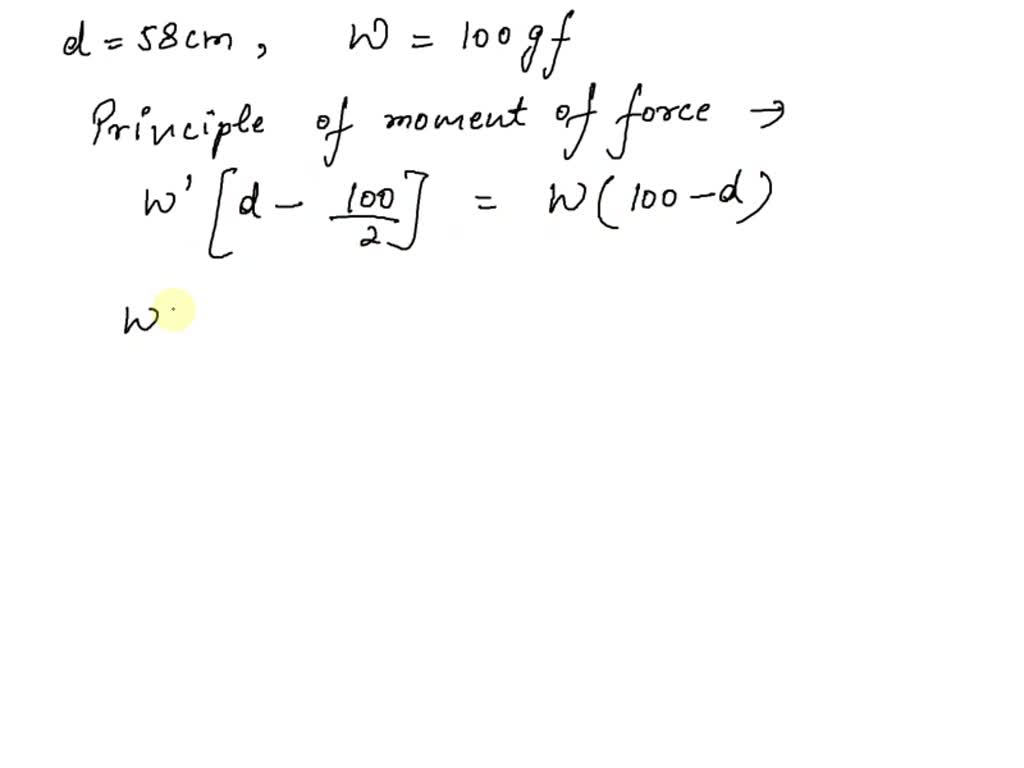 d = 58 cm, W = 100 gf
Principle of moment of force →
W' [d - 100/2] = W(100-d)
W